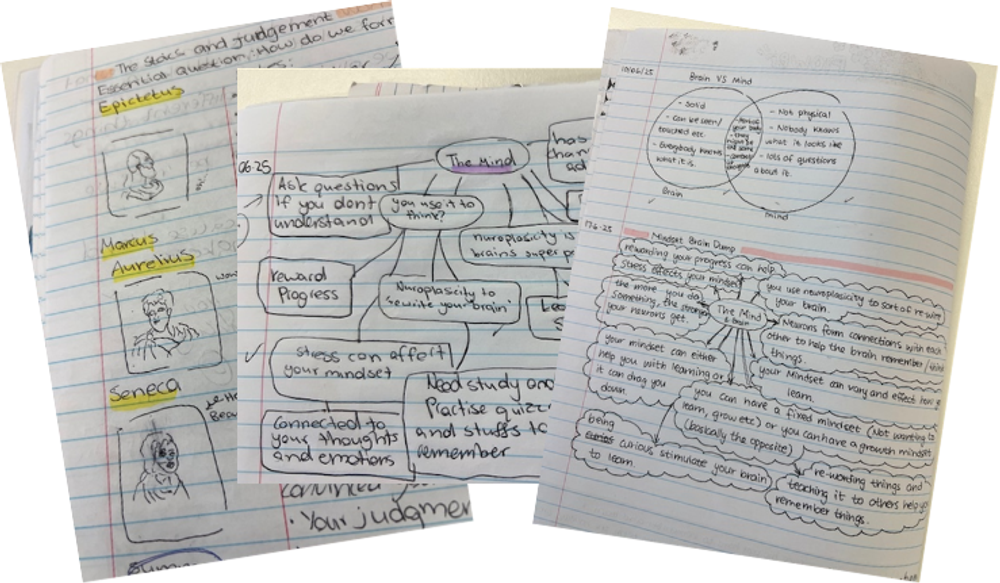 The Stoics and judgement
Essential question: How do we form
Epictetus
Marcus
Aurelius
Seneca
Your judgmer
06-25
The Mind
has
Ask questions
If you dont
understand
you use it to
think?
nuroplasicity is
brains super p
reward
Progress
Nuroplasicity to
"rewire your brain"
stress can affect
your mindset
Need study and
Practise quizz
and stuffs to
remember
Connected to
your thoughts
and emotions
10/06/25
Brain VS Mind
- Solid
- can be seen/
touched etc
- Everybody knows
what it is.
- Part of
your body
- they
might be
- Not physical
- Nobody knows
what it looks like
- lots of questions
about it.
Brain
mind
17-6-25
Mindset Brain Dump
rewarding your progress can help.
Stress effects your mindset
the more you do
something, the stronger
your neurons get.
The Mind
& brain
you use neuroplasicity to sort of re-wire
your brain.
Neurons form connections with each
other to help the brain remember/think
things.
your mindset can either
help you with learning or
it can drag you
down.
your Mindset can vary and effect how u
learn.
you can have a fixed mindset (Not wanting to
learn, grow etc) or you can have a growth mindset
(basically the opposite)
being
curious stimulate your brain
to learn.
re-wording things and
teaching it to others help yo
remember things.